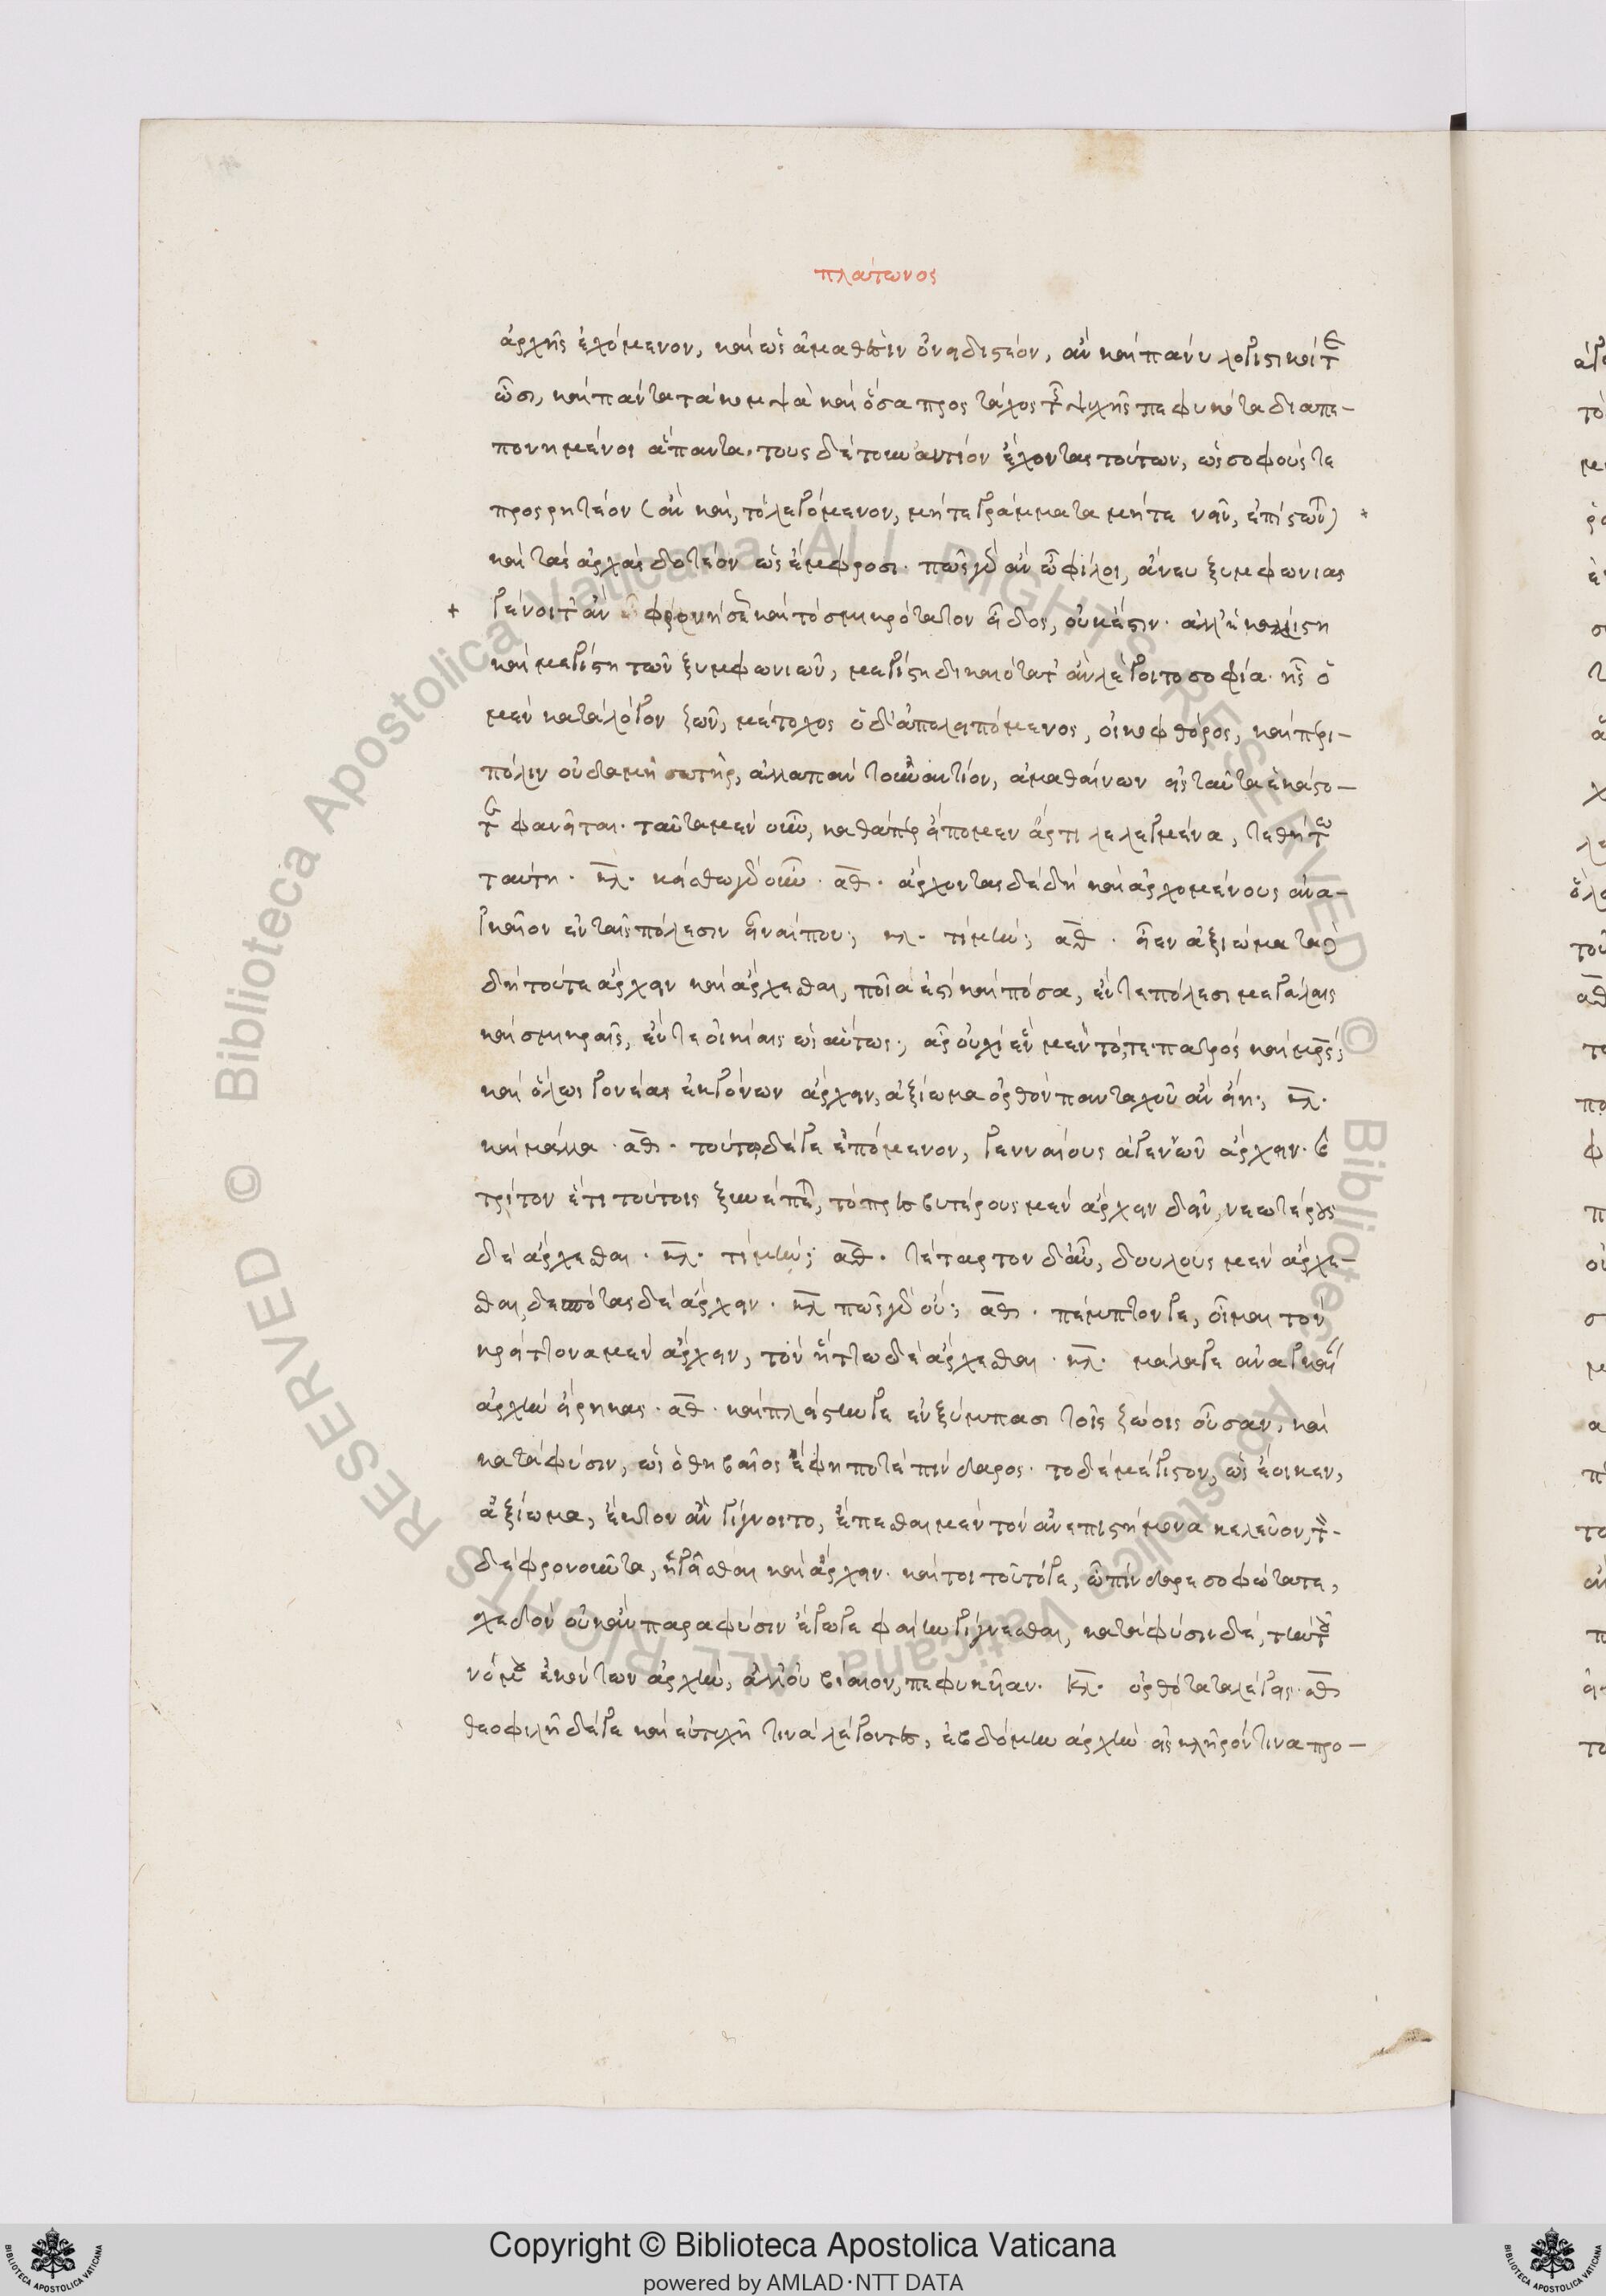 πλάτωνος
ἀρχῆς ἐχόμενον, καὶ ὡς ἀμαθέσιν ὀνειδιστέον, ἂν καὶ πάνυ λογιστικοί τε
ὦσι, καὶ πάντα τὰ κομψὰ καὶ ὅσα προς τάχος τῆς ψυχῆς πεφυκότα διαπε-
πονημένοι ἅπαντα. τους δὲ τουναντίον ἔχοντας τούτων, ὡς σοφούς τε
προσρητέον (ἂν καὶ, τὸ λεγόμενον, μήτε γράμματα μήτε νεῖν, ἐπίστωνται)
καὶ τὰς ἀρχὰς δοτέον ὡς ἔμφροσι. πῶς γὰρ ἂν ὦ φίλοι, ἄνευ ξυμφωνίας
γένοιτ' ἂν φρονήσεως καὶ τὸ σμικρότατον εἶδος, οὐκ ἔστιν. ἀλλ' ἡ καλλίστη
καὶ μεγίστη τῶν ξυμφωνιῶν, μεγίστη δικαιότατ' ἂν λέγοιτο σοφία. ἧς ὁ
μὲν κατὰ λόγον ζῶν, μέτοχος ὁ δ' ἀπολειπόμενος, οἰκοφθόρος, καὶ περὶ-
πόλιν οὐδαμῆ σωτὴρ, ἀλλὰ πᾶν τοὐναντίον, ἀμαθαίνων εἰς ταῦτα ἑκάστο-
τε φανεῖται. ταῦτα μὲν οὖν, καθάπερ εἴπομεν ἄρτι λελεγμένα, τεθήτω
ταύτη. κλ. κείσθω γὰρ οὖν. αθ. ἄρχοντας δὲ δὴ καὶ ἀρχομένους ἀνα-
γκαῖον ἐν ταῖς πόλεσιν εἶναί που; κλ. τί μήν; αθ. εἶεν ἀξιώματα
δὴ τοῦτε ἄρχειν καὶ ἄρχεσθαι, ποῖά ἐστι καὶ πόσα, ἔν τε πόλεσι μεγάλαις
καὶ σμικραῖς, ἔν τε οἰκίαις ὡσαύτως; ἆρ' οὐχὶ ἓν μὲν τό, τε πατρὸς καὶ μητρός;
καὶ ὅλως γονέας ἐκγόνων ἄρχειν, ἀξίωμα ὀρθὸν πανταχοῦ ἂν εἴη; κλ.
καὶ μάλα. αθ. τούτῳ δέ γε ἑπόμενον, γενναίους ἀγεννῶν ἄρχειν. καὶ
τρίτον ἔτι τούτοις ξυνέπεται, τὸ πρεσβυτέρους μὲν ἄρχειν δεῖν, νεωτέρους
δὲ ἄρχεσθαι. κλ. τί μήν; αθ. τέταρτον δ' αὖ, δούλους μὲν ἄρχε-
σθαι, δεσπότας δὲ ἄρχειν. κλ πῶς γὰρ οὔ; αθ. πέμπτον γε, οἶμαι τὸν
κρείττονα μὲν ἄρχειν, τὸν ἥττω δὲ ἄρχεσθαι. κλ. μάλα γε ἀναγκαίαν
ἀρχὴν εἴρηκας. αθ. καὶ πλείστην γε ἐν ξύμπασι τοῖς ζώοις οὖσαν, καὶ
κατὰ φύσιν, ὡς ὁ θηβαῖος ἔφη ποτὲ πίνδαρος. τὸ δὲ μέγιστον, ὡς ἔοικεν,
ἀξίωμα, ἕκτον ἂν γίγνοιτο, ἕπεσθαι μὲν τὸν ἀνεπιστήμονα κελεῦον, τὸν-
δὲ φρονοῦντα, ἡγεῖσθαι καὶ ἄρχειν. καί τοι τοῦτό γε, ὦ πίνδαρε σοφώτατε,
σχεδὸν οὐκ ἂν παρὰ φύσιν ἔγωγε φαίην γίγνεσθαι, κατὰ φύσιν δὲ, τὴν τοῦ
νόμου ἑκόντων ἀρχὴν, ἀλλ' οὐ βίαιον, πεφυκυῖαν. κλ. ὀρθότατα λέγεις. αθ
θεοφιλῆ δέ γε καὶ εὐτυχῆ τινὰ λέγοντες, ἑβδόμην ἀρχὴν εἰς κλῆρόν τινα προ-
Copyright © Biblioteca Apostolica Vaticana
powered by AMLAD·NTT DATA